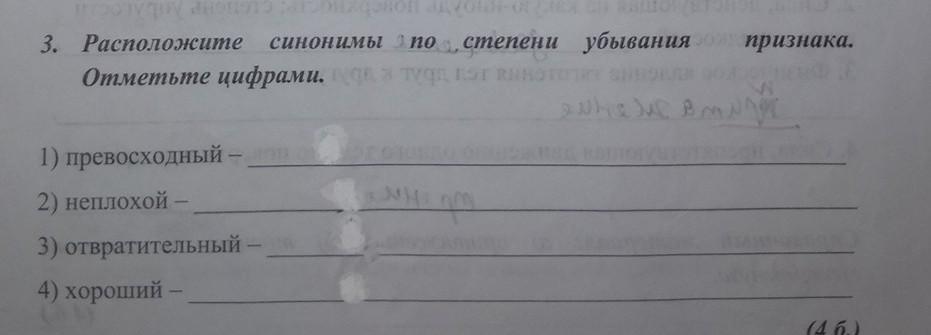 3. Расположите синонимы по степени убывания признака.
Отметьте цифрами.
1) превосходный –
2) неплохой –
3) отвратительный –
4) хороший –
(4 б.)